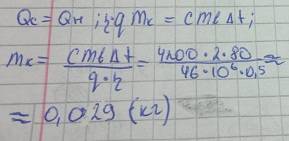 Qc = Qн ; η·q mк = cmвΔt ;
mк = cmвΔt / q·η = 4200·2·80 / 46·10⁶·0,5 ≈
≈ 0,029 (кг)